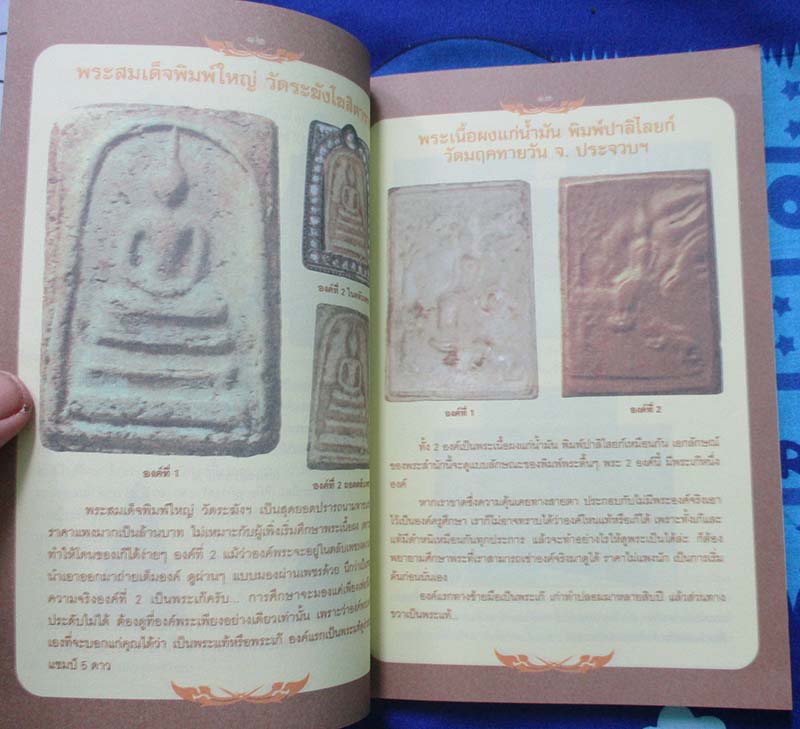 ๑๒
พระสมเด็จพิมพ์ใหญ่ วัดระฆังโฆสิตา
องค์ที่ 1
องค์ที่ 2 ในตลับ
องค์ที่ 2 ถอดตลับ
พระสมเด็จพิมพ์ใหญ่ วัดระฆังฯ เป็นสุดยอดปรารถนา
ราคาแพงมากเป็นล้านบาท ไม่เหมาะกับผู้เพิ่งเริ่มศึกษาพระเนื้อผง
ทำให้โดนของเก๊ได้ง่ายๆ องค์ที่ 2 แม้ว่าองค์พระจะอยู่ในตลับเพชร
นำเอาออกมาถ่ายเต็มองค์ ดูผ่านๆ แบบมองผ่านเพชรด้วย นึกว่า
ความจริงองค์ที่ 2 เป็นพระเก๊ครับ... การศึกษาจะมองแค่เพียง
ประดับไม่ได้ ต้องดูที่องค์พระเพียงอย่างเดียวเท่านั้น เพราะว่าองค์พระ
เองที่จะบอกแก่คุณได้ว่า เป็นพระแท้หรือพระเก๊ องค์แรกเป็นพระแท้
แชมป์ 5 ดาว
๑๓
พระเนื้อผงแก่น้ำมัน พิมพ์ปาลิไลยก์
วัดมฤคทายวัน จ. ประจวบฯ
องค์ที่ 1
องค์ที่ 2
ทั้ง 2 องค์เป็นพระเนื้อผงแก่น้ำมัน พิมพ์ปาลิไลยก์เหมือนกัน เอกลักษณ์
ของพระสำนักนี้จะดูแบบลักษณะของพิมพ์พระตื้นๆ พระ 2 องค์นี้ มีพระเก๊หนึ่ง
องค์
หากเราขาดซึ่งความคุ้นเคยทางสายตา ประกอบกับไม่มีพระองค์จริงเอา
ไว้เป็นองค์ครูศึกษา เราก็ไม่อาจทราบได้ว่าองค์ไหนแท้หรือเก๊ได้ เพราะทั้งเก๊และ
แท้มีตำหนิเหมือนกันทุกประการ แล้วจะทำอย่างไรให้ดูพระเป็นได้ล่ะ ก็ต้อง
พยายามศึกษาพระที่เราสามารถเช่าองค์จริงมาดูได้ ราคาไม่แพงนัก เป็นการเริ่ม
ต้นก่อนนั่นเอง
องค์แรกทางซ้ายมือเป็นพระเก๊ เก่าทำปลอมมาหลายสิบปี แล้วส่วนทาง
ขวาเป็นพระแท้...